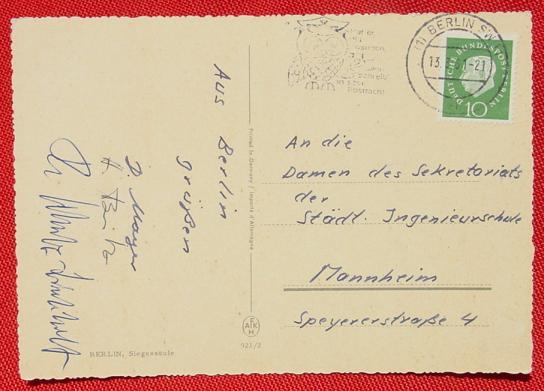 Aus Berlin
grüßen
D. Mayer
Printed in Germany / Importé d'Allemagne
BERLIN, Siegessäule
921/2
(1) BERLIN SW
13.
-21
DEUTSCHE BUNDESPOST BERLIN
10
An die
Damen des Sekretariats
der
Städt. Ingenieurschule
Mannheim
Speyererstraße 4